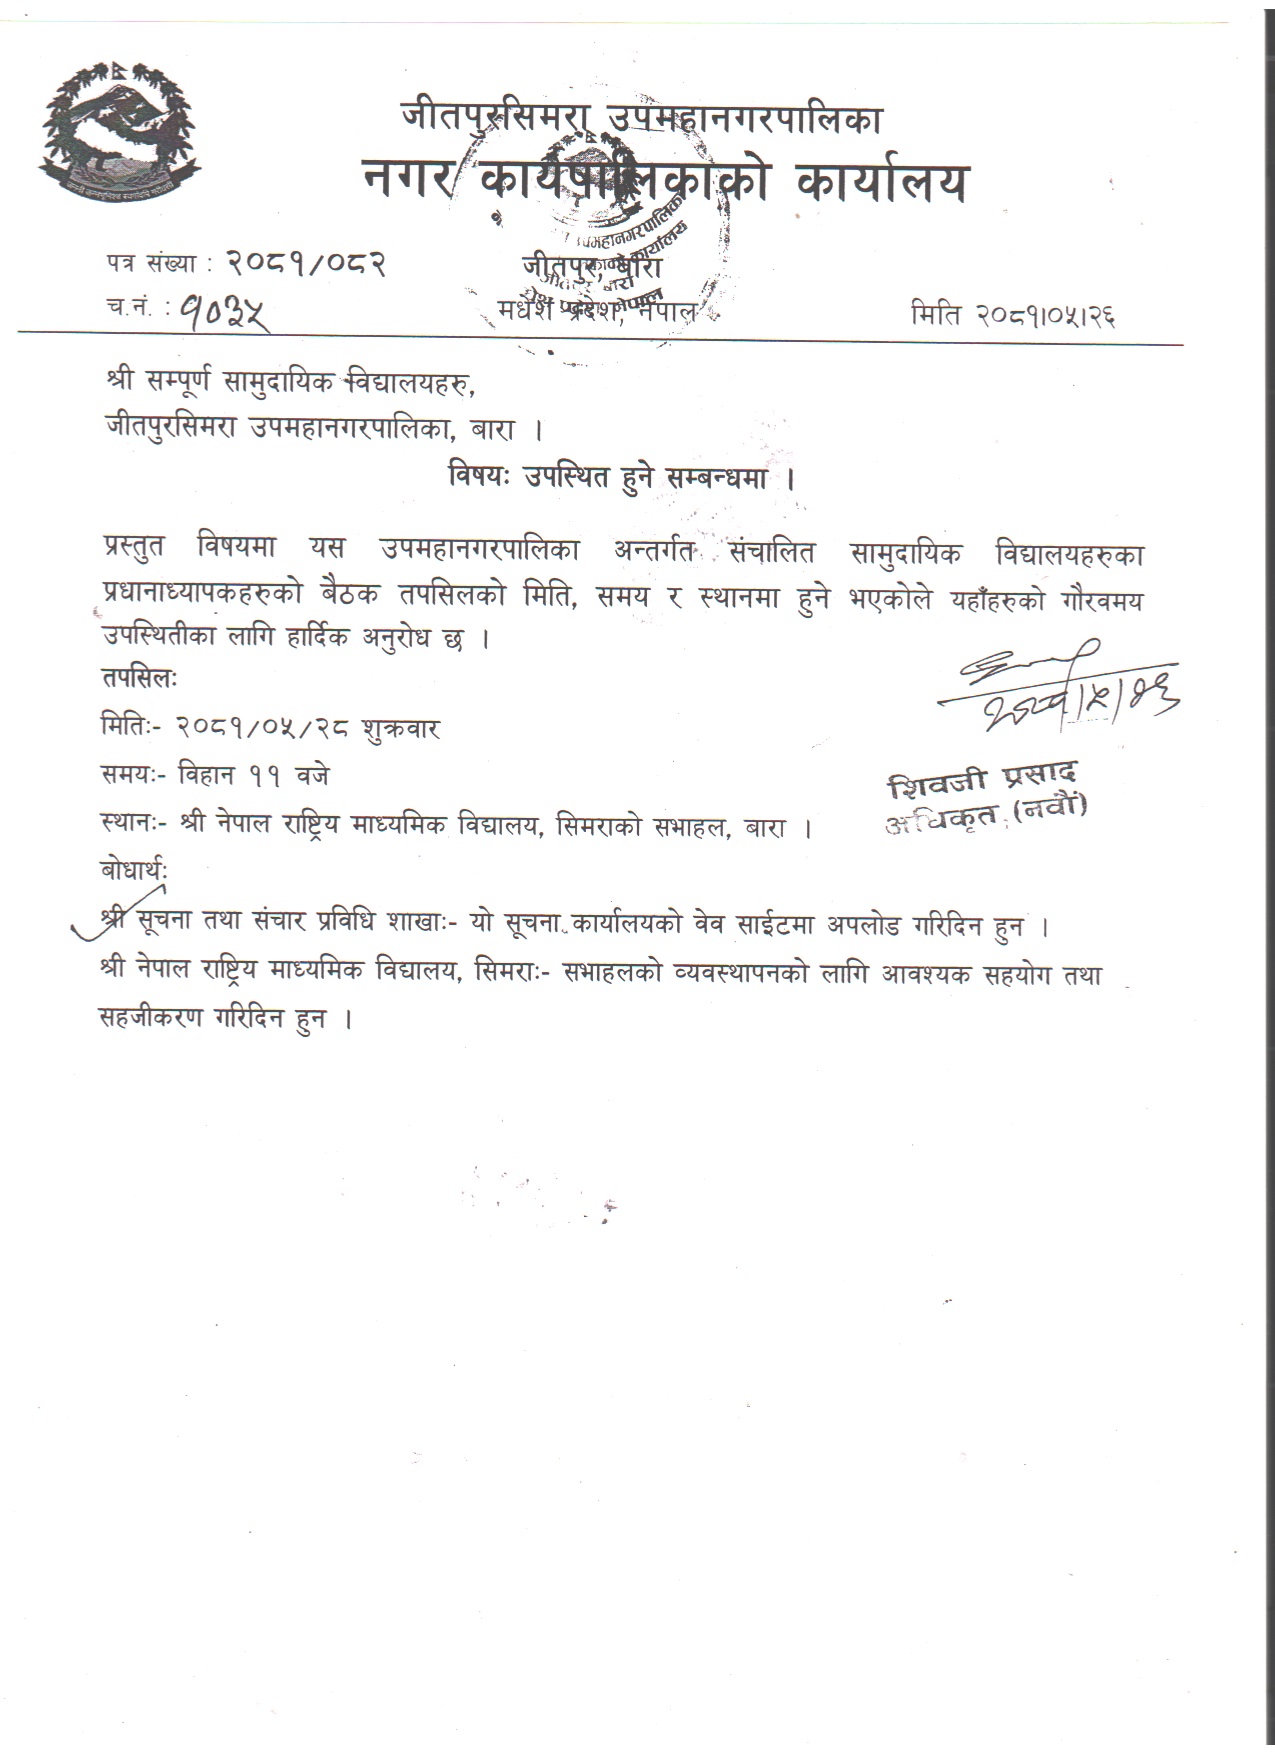 जीतपुरसिमरा उपमहानगरपालिका
नगर कार्यपालिकाको कार्यालय
पत्र संख्या : २०८१/०८२
जीतपुर, बारा
च.नं. : १०३५
मधेश प्रदेश, नेपाल
मिति २०८१।०५।२६
श्री सम्पूर्ण सामुदायिक विद्यालयहरु,
जीतपुरसिमरा उपमहानगरपालिका, बारा ।
विषयः उपस्थित हुने सम्बन्धमा ।
प्रस्तुत विषयमा यस उपमहानगरपालिका अन्तर्गत संचालित सामुदायिक विद्यालयहरुका
प्रधानाध्यापकहरुको बैठक तपसिलको मिति, समय र स्थानमा हुने भएकोले यहाँहरुको गौरवमय
उपस्थितीका लागि हार्दिक अनुरोध छ ।
तपसिलः
मितिः- २०८१/०५/२८ शुक्रवार
समयः- विहान ११ वजे
स्थानः- श्री नेपाल राष्ट्रिय माध्यमिक विद्यालय, सिमराको सभाहल, बारा ।
२०८१/५/२६
शिवजी प्रसाद
अधिकृत (नवौं)
बोधार्थः
श्री सूचना तथा संचार प्रविधि शाखाः- यो सूचना कार्यालयको वेव साईटमा अपलोड गरिदिन हुन ।
श्री नेपाल राष्ट्रिय माध्यमिक विद्यालय, सिमराः- सभाहलको व्यवस्थापनको लागि आवश्यक सहयोग तथा
सहजीकरण गरिदिन हुन ।